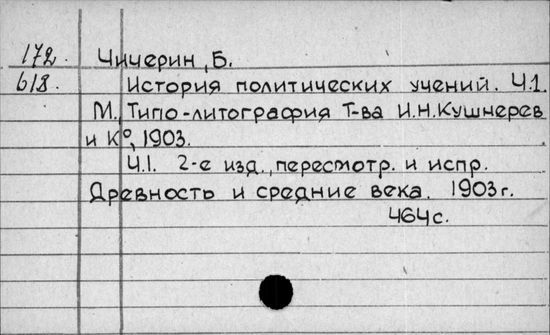 172. Чичерин, Б.
618. История политических учений. Ч.1.
М., Типо-литография Т-ва И.Н.Кушнерев
и К°, 1903.
Ч.1. 2-е изд., пересмотр. и испр.
Древность и средние века. 1903г.
464с.